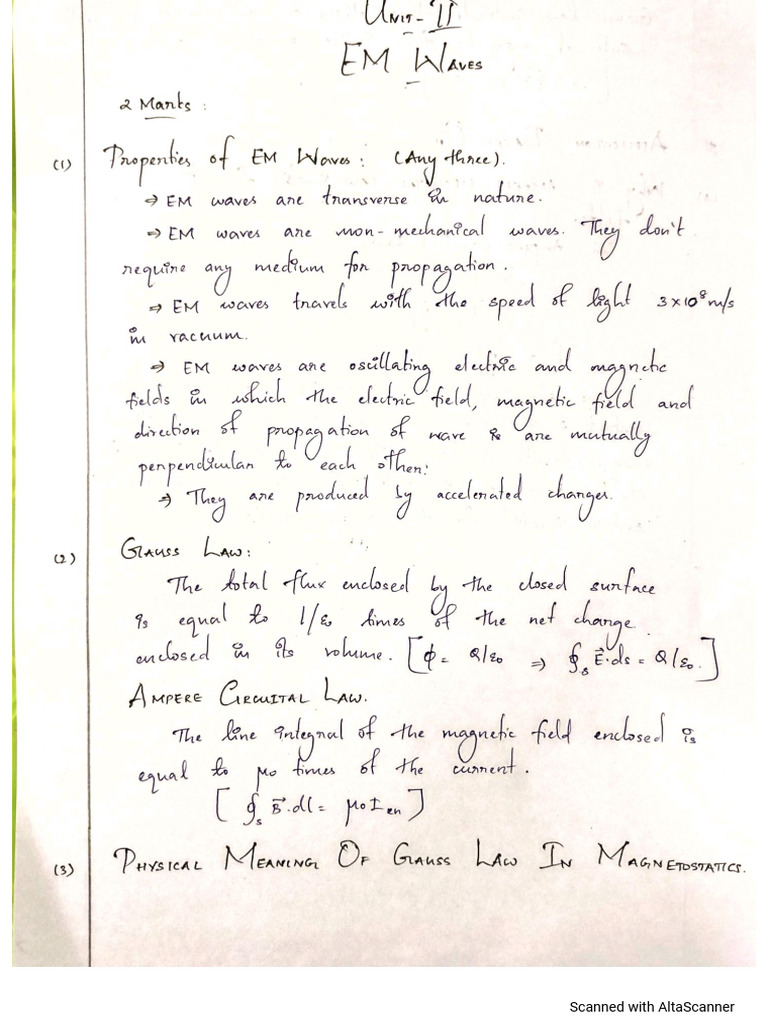 UNIT-II
EM WAVES
2 Marks :
(1) Properties of EM Waves : (Any three).
⇒ EM waves are transverse in nature.
⇒ EM waves are non-mechanical waves. They don't
require any medium for propagation.
⇒ EM waves travels with the speed of light 3×10⁸m/s
in vacuum.
⇒ EM waves are oscillating electric and magnetic
fields in which the electric field, magnetic field and
direction of propagation of wave is are mutually
perpendicular to each other.
⇒ They are produced by accelerated charges.
(2) GAUSS LAW :
The total flux enclosed by the closed surface
is equal to 1/ε₀ times of the net charge
enclosed in its volume. [ϕ = Q/ε₀ ⇒ ∮s E⃗.ds = Q/ε₀.]
AMPERE CIRCUITAL LAW.
The line integral of the magnetic field enclosed is
equal to μ₀ times of the current.
[∮s B⃗.dl = μ₀I en]
(3) PHYSICAL MEANING OF GAUSS LAW IN MAGNETOSTATICS.
Scanned with AltaScanner